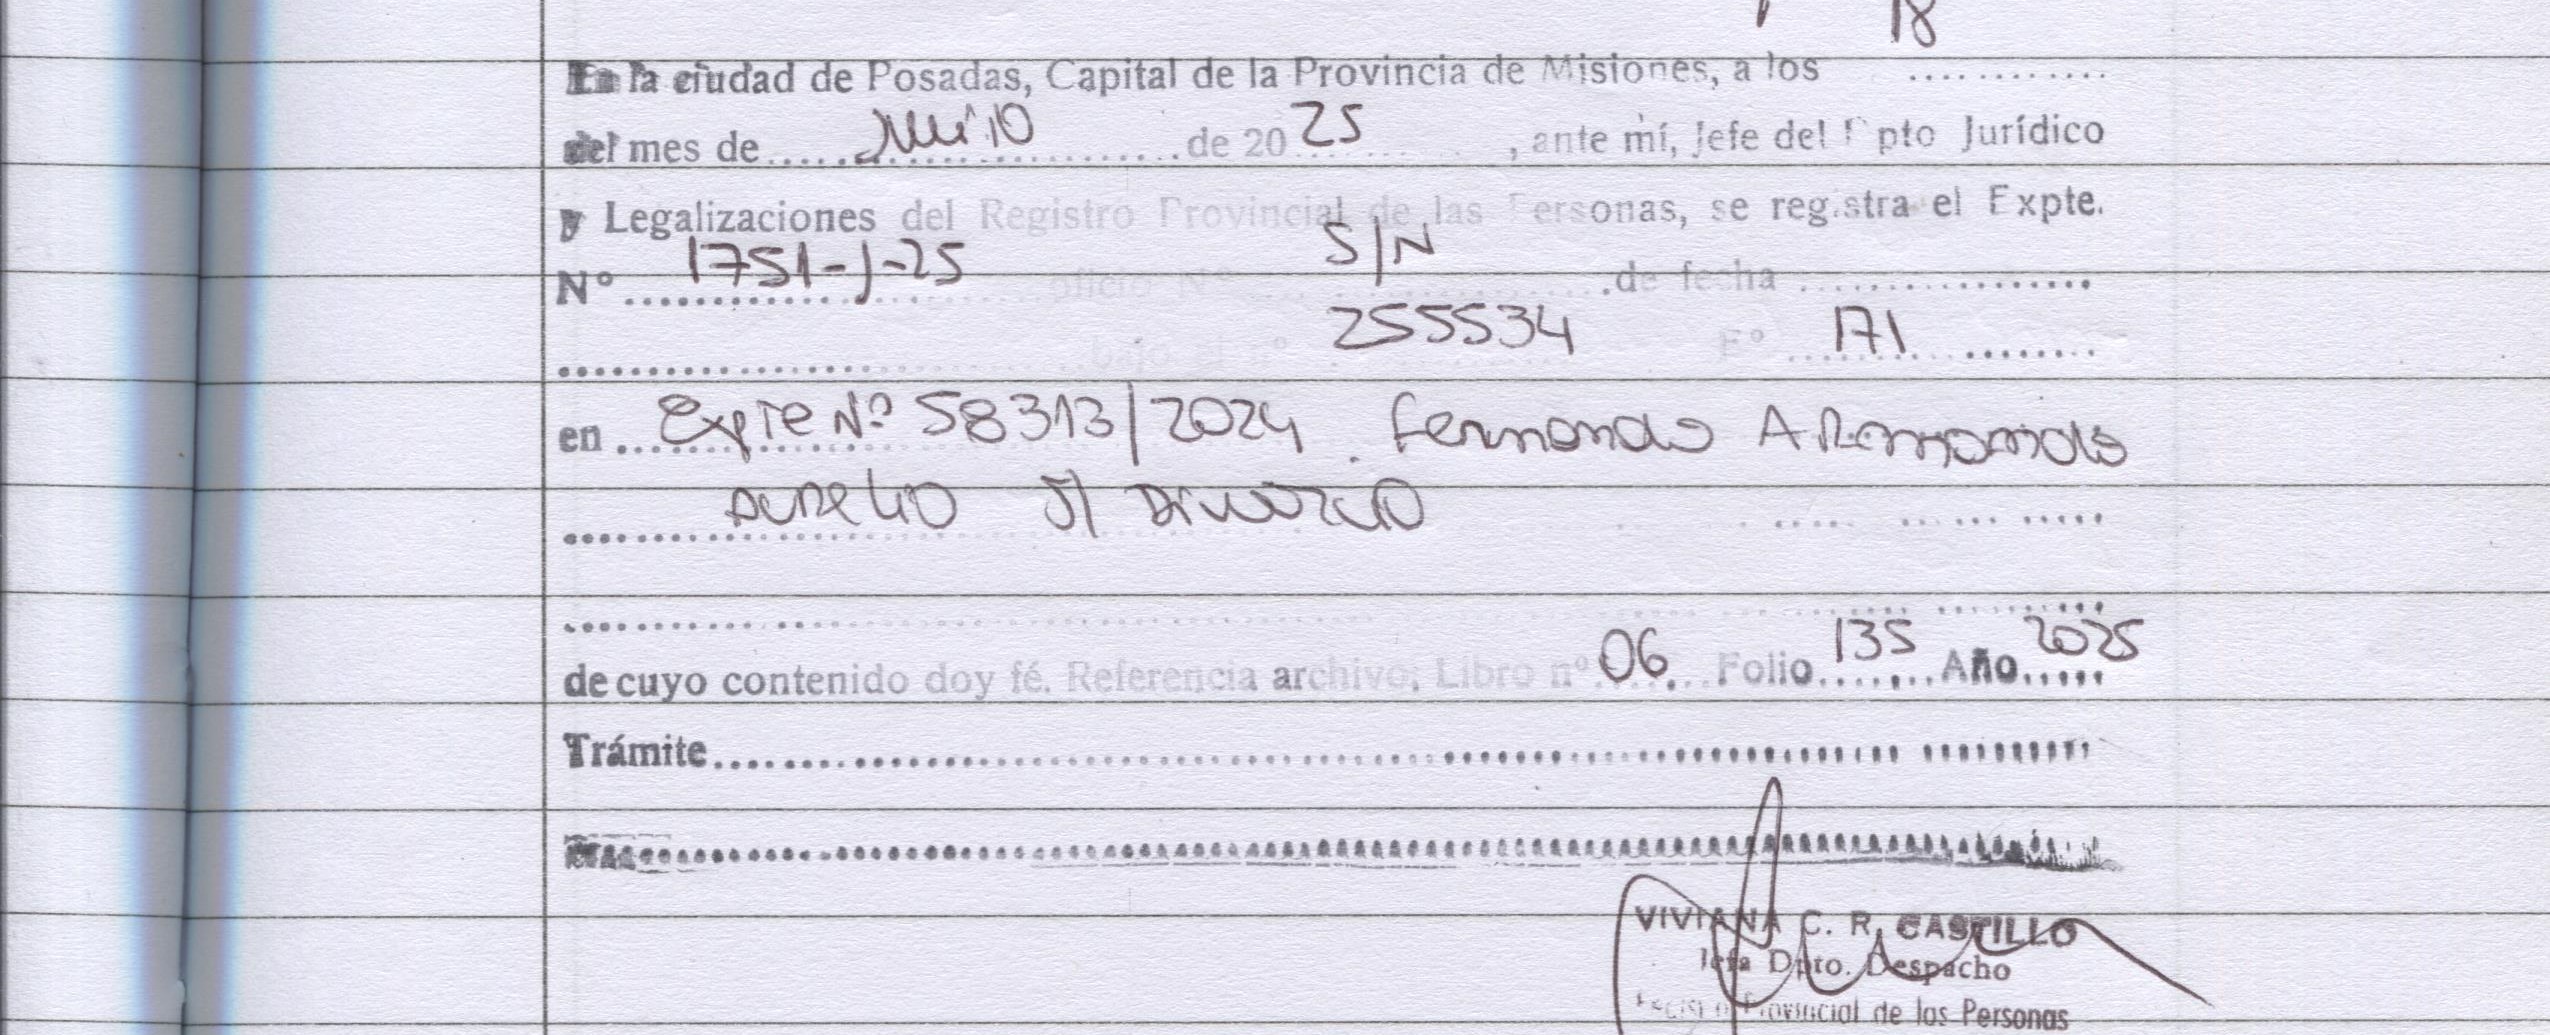 18
En la ciudad de Posadas, Capital de la Provincia de Misiones, a los ............
del mes de ..... Junio ..... de 20 25 , ante mí, Jefe del Dpto Jurídico
y Legalizaciones del Registro Provincial de las Personas, se registra el Expte.
Nº 1751-J-25 oficio Nº S/N de fecha ..................
.................. bajo el nº 255534 Fº 171 ........
en ... Expte Nº 58313/2024 . Fernando
Aurelio S/ Divorcio
..................
de cuyo contenido doy fé. Referencia archivo: Libro nº 06 Folio 135 Año 2025
Trámite ..................
VIVIANA C. R. CASTILLO
Jefa Dpto. Despacho
Registro Provincial de las Personas